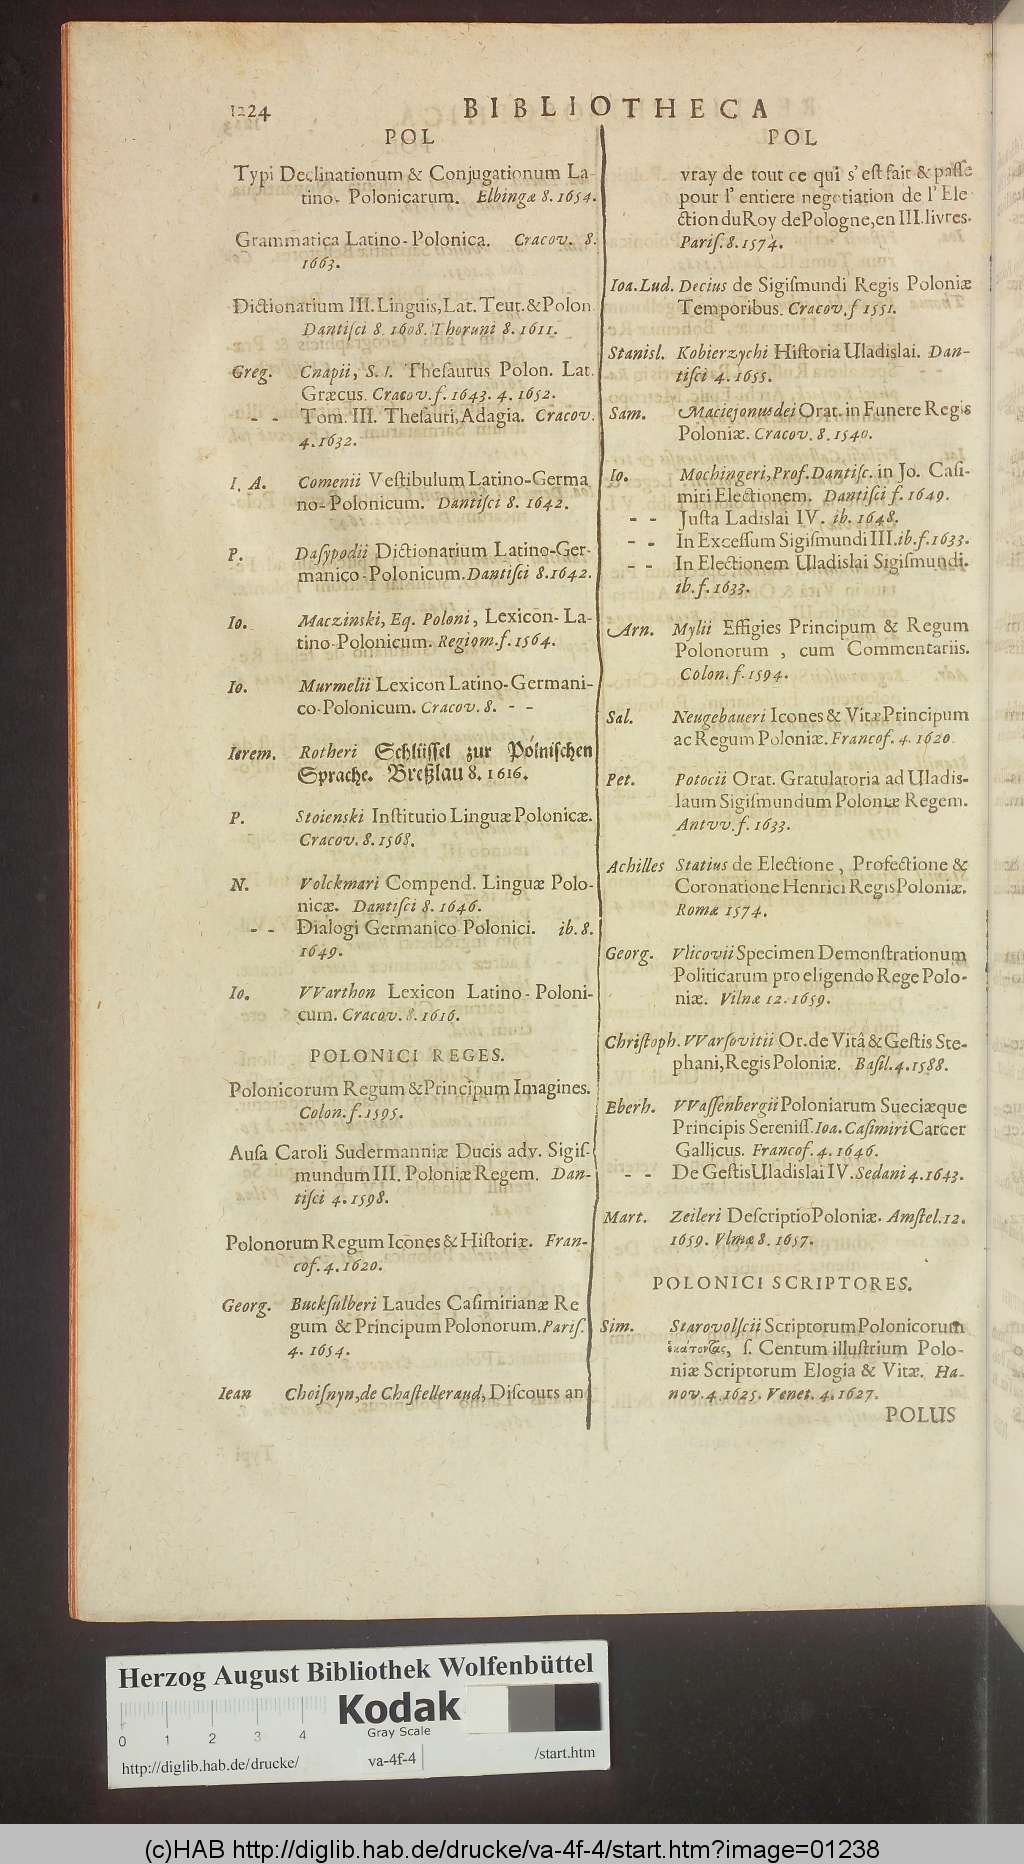 1224 BIBLIOTHECA
POL
Typi Declinationum & Conjugationum La-
tino- Polonicarum. Elbingæ 8. 1654.
Grammatica Latino-Polonica. Cracov. 8.
1663.
Dictionarium III. Linguis, Lat. Teut. & Polon
Dantiſci 8. 1608. Thoruni 8. 1611.
Greg. Cnapii, S. I. Theſaurus Polon. Lat.
Græcus. Cracov. f. 1643. 4. 1652.
- - Tom. III. Theſauri, Adagia. Cracov.
4. 1632.
I. A. Comenii Veſtibulum Latino-Germa
no-Polonicum. Dantiſci 8. 1642.
P. Daſypodii Dictionarium Latino-Ger-
manico-Polonicum. Dantiſci 8. 1642.
Io. Maczinski, Eq. Poloni, Lexicon-La-
tino-Polonicum. Regiom. f. 1564.
Io. Murmelii Lexicon Latino-Germani-
co-Polonicum. Cracov. 8. - -
Ierem. Rotheri Schlüſſel zur Polniſchen
Sprache. Breßlau 8. 1616.
P. Stoienski Inſtitutio Linguæ Polonicæ.
Cracov. 8. 1568.
N. Volckmari Compend. Linguæ Polo-
nicæ. Dantiſci 8. 1646.
- - Dialogi Germanico Polonici. ib. 8.
1649.
Io. VVarthon Lexicon Latino-Poloni-
cum. Cracov. 8. 1616.
POLONICI REGES.
Polonicorum Regum & Principum Imagines.
Colon. f. 1595.
Auſa Caroli Sudermanniæ Ducis adv. Sigiſ-
mundum III. Poloniæ Regem. Dan-
tiſci 4. 1598.
Polonorum Regum Icones & Hiſtoriæ. Fran-
cof. 4. 1620.
Georg. Buckſulberi Laudes Caſimirianæ Re
gum & Principum Polonorum. Pariſ.
4. 1654.
Iean Choiſnyn, de Chaſtelleraud, Diſcours au
POL
vray de tout ce qui s'eſt fait & paſſe
pour l'entiere negotiation de l'Ele
ction du Roy de Pologne, en III. livres.
Pariſ. 8. 1574.
Ioa. Lud. Decius de Sigiſmundi Regis Poloniæ
Temporibus. Cracov. f 1551.
Stanisl. Kobierzychi Hiſtoria Uladislai. Dan-
tiſci 4. 1655.
Sam. Maciejonusdei Orat. in Funere Regis
Poloniæ. Cracov. 8. 1540.
Io. Mochingeri, Prof. Dantiſc. in Jo. Caſi-
miri Electionem. Dantiſci f. 1649.
- - Juſta Ladislai IV. ib. 1648.
- - In Exceſſum Sigiſmundi III. ib. f. 1633.
- - In Electionem Uladislai Sigiſmundi.
ib. f. 1633.
Arn. Mylii Effigies Principum & Regum
Polonorum, cum Commentariis.
Colon. f. 1594.
Sal. Neugebaueri Icones & Vitæ Principum
ac Regum Poloniæ. Francof. 4. 1620
Pet. Potocii Orat. Gratulatoria ad Uladis-
laum Sigiſmundum Poloniæ Regem.
Antvv. f. 1633.
Achilles Statius de Electione, Profectione &
Coronatione Henrici Regis Poloniæ.
Romæ 1574.
Georg. Vlicovii Specimen Demonſtrationum
Politicarum pro eligendo Rege Polo-
niæ. Vilnæ 12. 1659.
Chriſtoph. VVarſovitii Or. de Vitâ & Geſtis Ste-
phani, Regis Poloniæ. Baſil. 4. 1588.
Eberh. VVaſſenbergii Poloniarum Sueciæque
Principis Sereniſſ. Ioa. Caſimiri Carcer
Gallicus. Francof. 4. 1646.
- - De Geſtis Uladislai IV. Sedani 4. 1643.
Mart. Zeileri Deſcriptio Poloniæ. Amſtel. 12.
1659. Vlmæ 8. 1657.
POLONICI SCRIPTORES.
Sim. Starovolſcii Scriptorum Polonicorum
ἑκατοντὰς, ſ. Centum illuſtrium Polo-
niæ Scriptorum Elogia & Vitæ. Ha-
nov. 4. 1625. Venet. 4. 1627.
POLUS
Herzog August Bibliothek Wolfenbüttel
Kodak
Gray Scale
0 1 2 3 4
http://diglib.hab.de/drucke/ va-4f-4 /start.htm
(c)HAB http://diglib.hab.de/drucke/va-4f-4/start.htm?image=01238